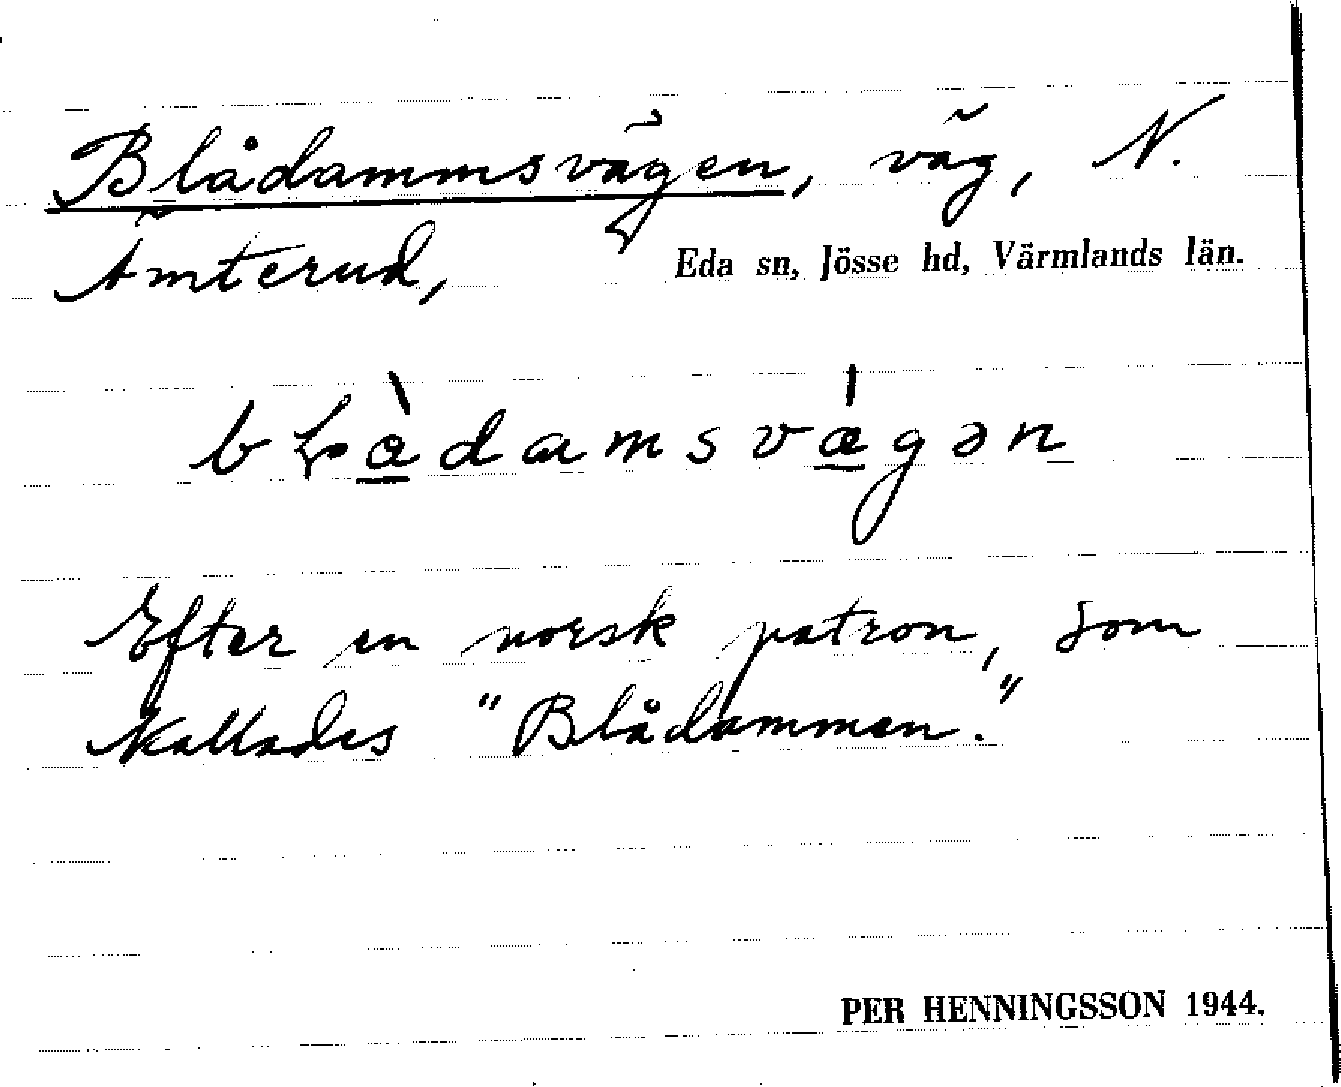 Blådammsvägen, väg, N.
Ämterud,
Eda sn, Jösse hd, Värmlands län.
Efter en norsk patron, som
kallades "Blådammen."
PER HENNINGSSON 1944.